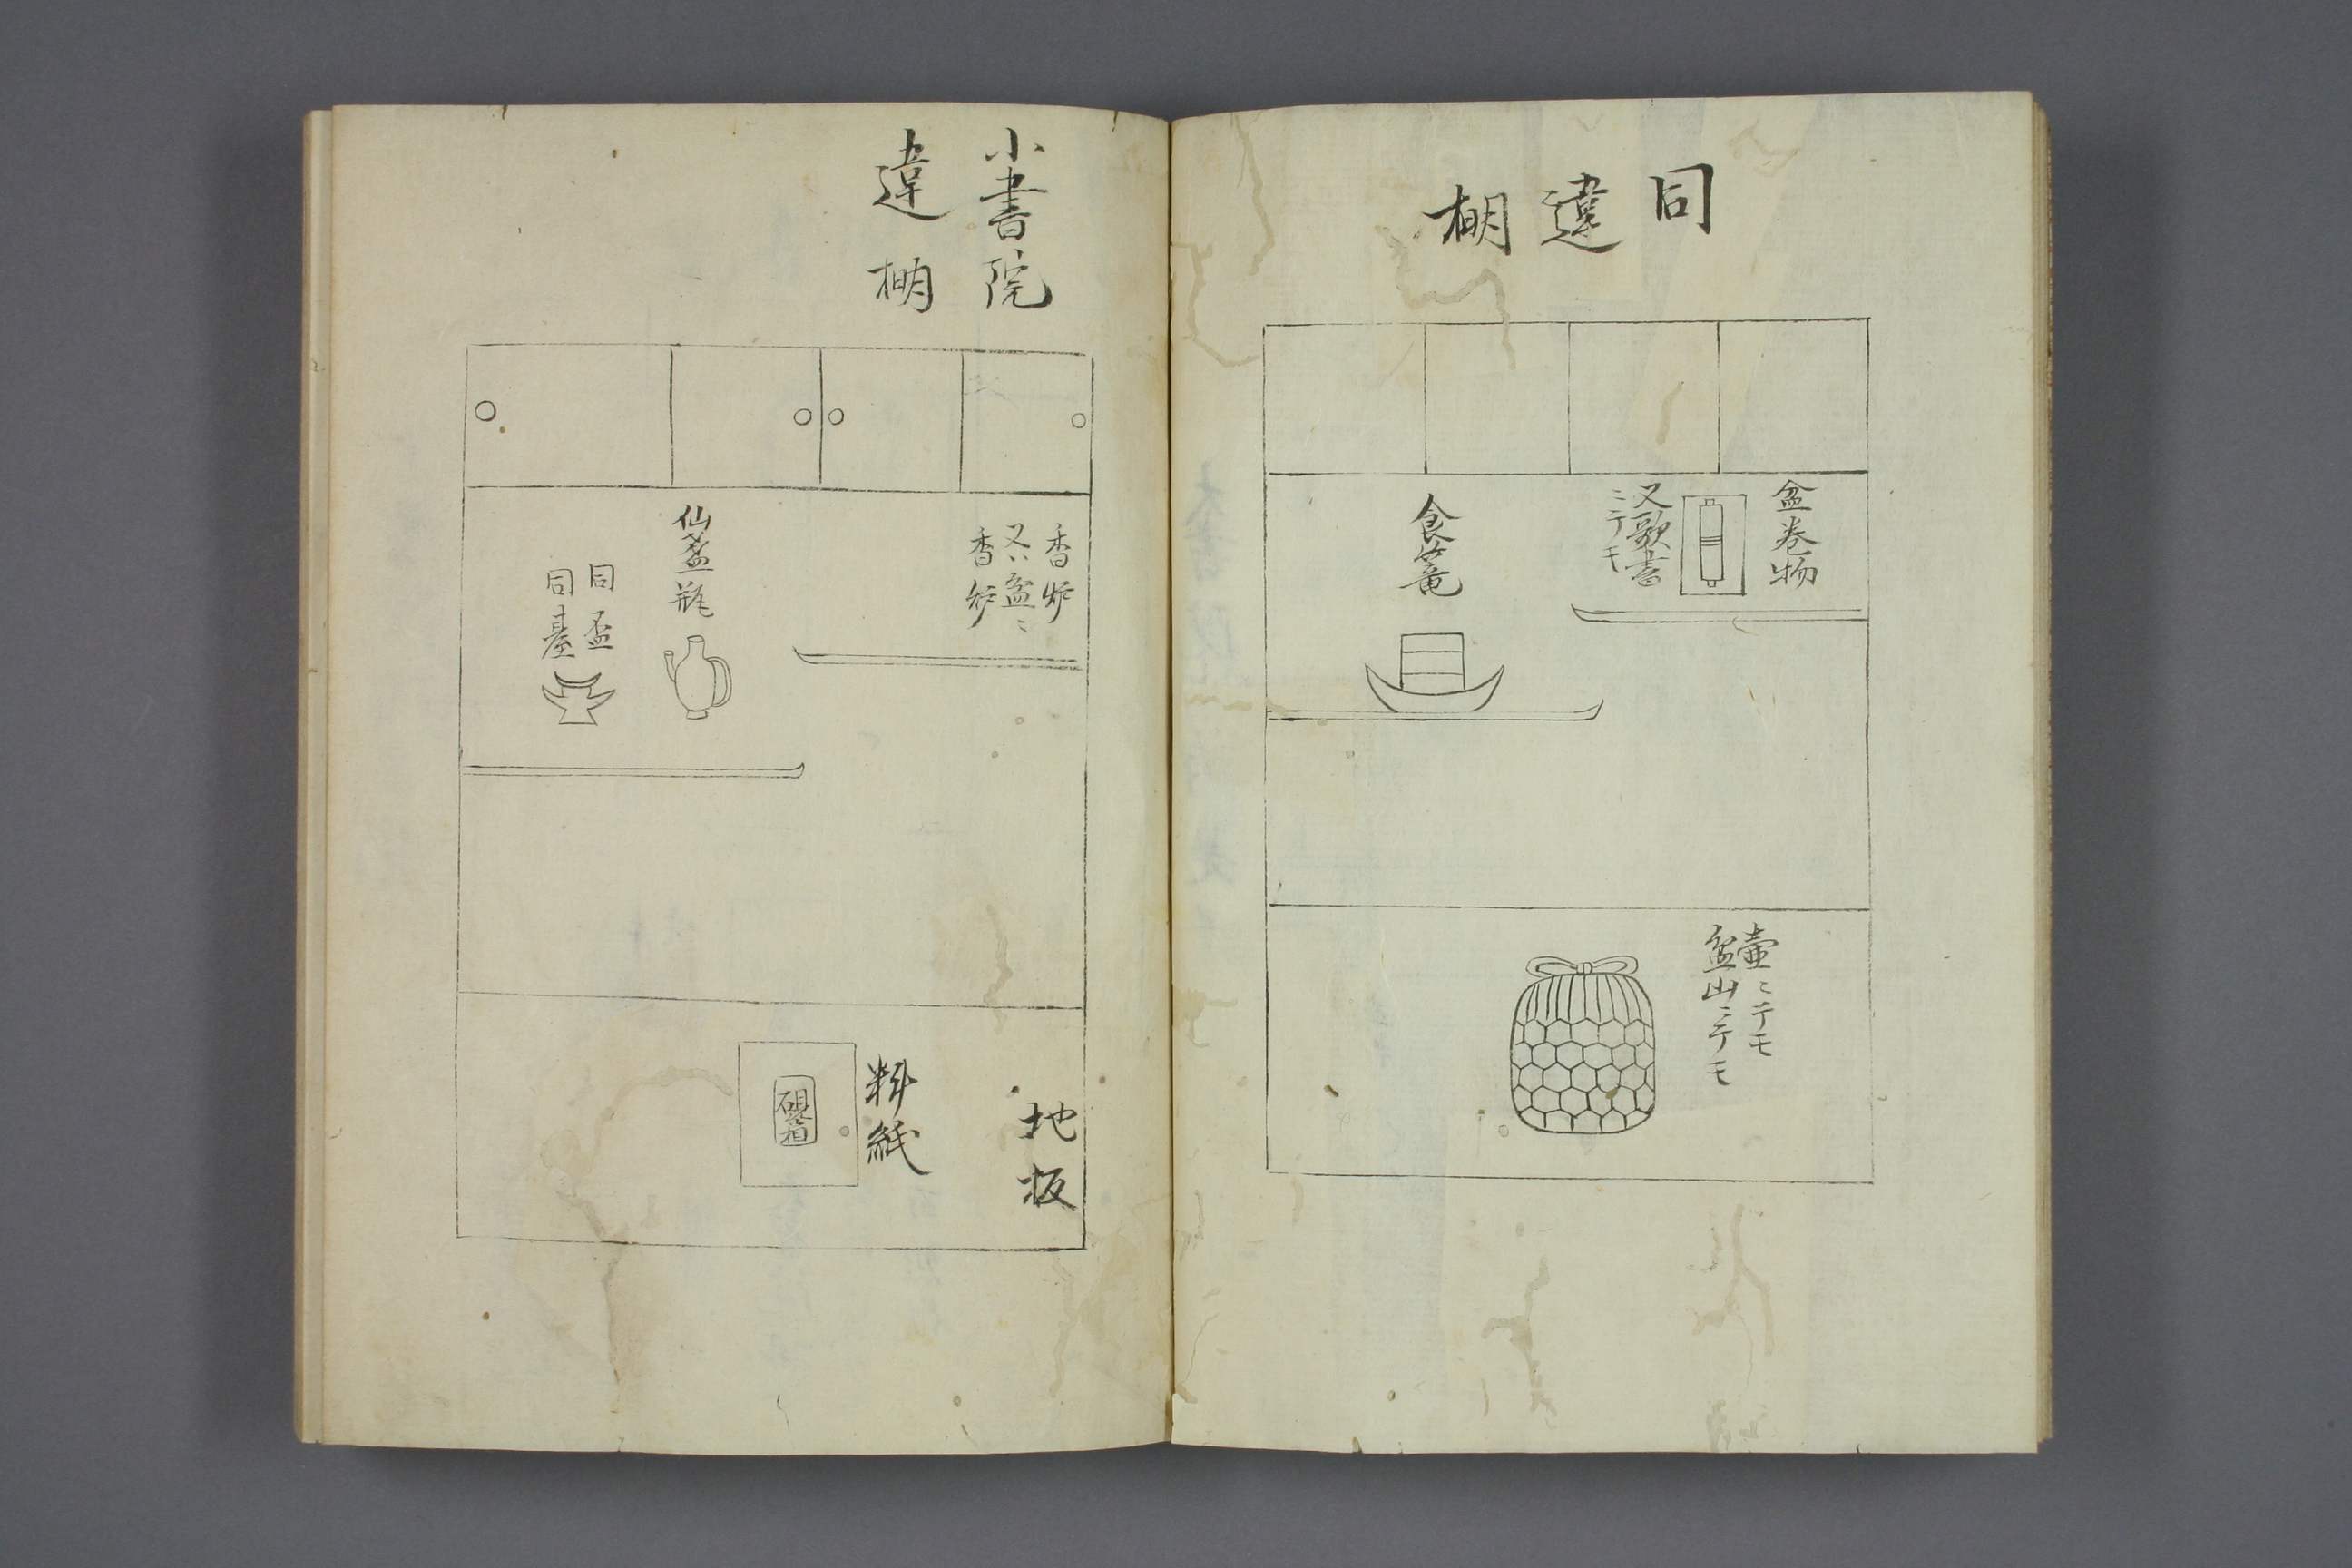 同
違
棚
盆巻物
又歌書
ニテモ
食篭
壷ニテモ
盆山ニテモ
小書院
違棚
香炉
又ハ盆ニ
香炉
仙盞瓶
同盃
同臺
地板
料紙
硯箱